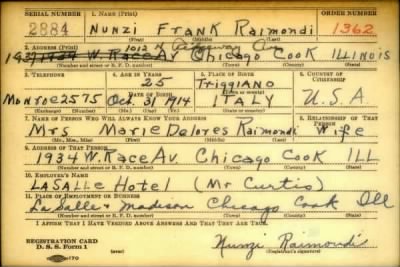 SERIAL NUMBER 1. NAME (Print) ORDER NUMBER
2884 NUNZI FRANK RAIMONDI 1362
(First) (Middle) (Last)
2. ADDRESS (Print) 1012 N Ridgeway Av
W. RACE AV CHICAGO COOK ILLINOIS
(Number and street or R. F. D. number) (Town) (County) (State)
3. TELEPHONE 4. AGE IN YEARS 5. PLACE OF BIRTH 6. COUNTRY OF CITIZENSHIP
25 TRIGGIANO
DATE OF BIRTH (Town or county)
MONROE 2575 Oct. 31 1914 ITALY U.S.A.
(Exchange) (Number) (Mo.) (Day) (Yr.) (State or country)
7. NAME OF PERSON WHO WILL ALWAYS KNOW YOUR ADDRESS 8. RELATIONSHIP OF THAT PERSON
Mrs Marie Delores Raimondi Wife
(Mr., Mrs., Miss) (First) (Middle) (Last)
9. ADDRESS OF THAT PERSON
1934 W. RACE AV. CHICAGO COOK ILL
(Number and street or R. F. D. number) (Town) (County) (State)
10. EMPLOYER'S NAME
LASALLE HOTEL (Mr Curtis)
11. PLACE OF EMPLOYMENT OR BUSINESS
LaSalle & Madison Chicago Cook Ill
(Number and street or R. F. D. number) (Town) (County) (State)
I AFFIRM THAT I HAVE VERIFIED ABOVE ANSWERS AND THAT THEY ARE TRUE.
REGISTRATION CARD
D. S. S. Form 1 Nunzi Raimondi
(Registrant's signature)